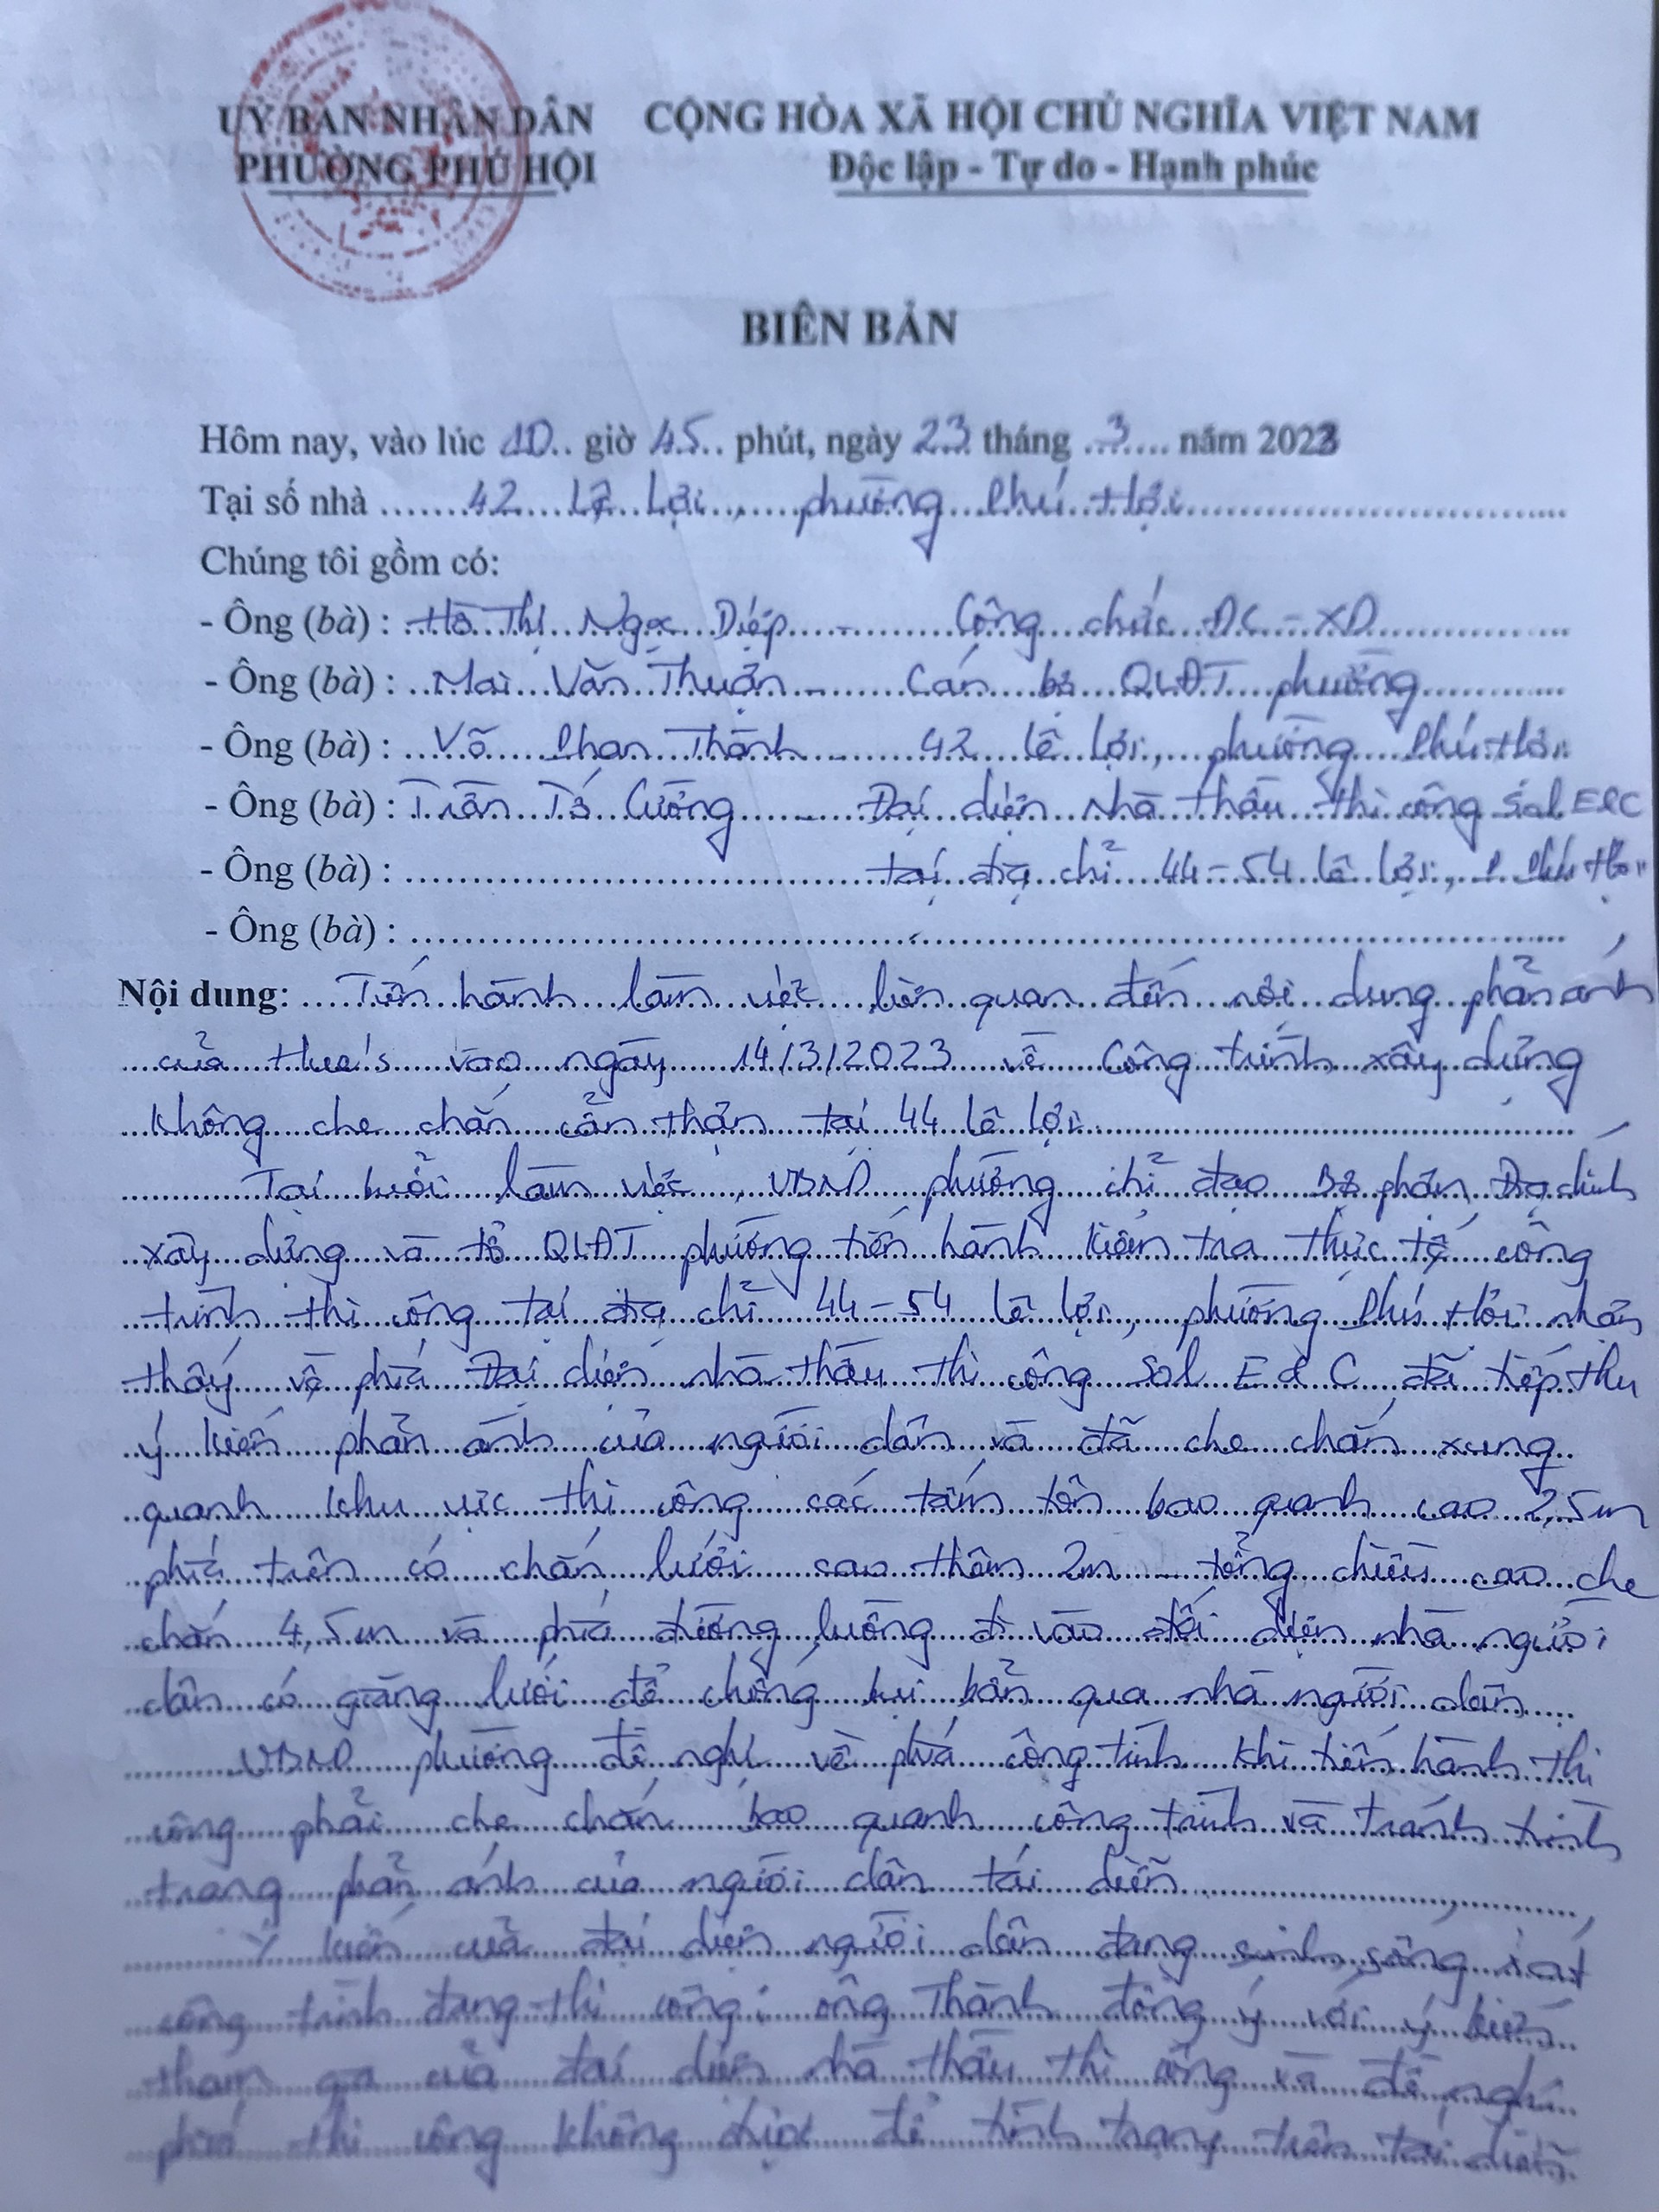 UỶ BAN NHÂN DÂN
PHƯỜNG PHÚ HỘI
CỘNG HÒA XÃ HỘI CHỦ NGHĨA VIỆT NAM
Độc lập - Tự do - Hạnh phúc
BIÊN BẢN
Hôm nay, vào lúc 10 giờ 45 phút, ngày 23 tháng 3 năm 2023
Tại số nhà 42 Lê Lợi, phường Phú Hội
Chúng tôi gồm có:
- Ông (bà) : Hồ Thị Ngọc Diệp - Công chức ĐC - XD
- Ông (bà) : Mai Văn Thuận - Cán bộ QLĐT phường
- Ông (bà) : Võ Phan Thành - 42 Lê Lợi, phường Phú Hội
- Ông (bà) : Trần Tố Cường - Đại diện nhà thầu thi công Sol E&C
- Ông (bà) : tại địa chỉ 44-54 Lê Lợi, P Phú Hội
- Ông (bà) :
Nội dung: Tiến hành làm việc liên quan đến nội dung phản ánh
của Hue's vào ngày 14/3/2023 về Công trình xây dựng
không che chắn cẩn thận tại 44 Lê Lợi
Tại buổi làm việc, UBND phường chỉ đạo Bộ phận Địa chính
xây dựng và tổ QLĐT phường tiến hành kiểm tra thực tế công
trình thi công tại địa chỉ 44-54 Lê Lợi, phường Phú Hội nhận
thấy về phía Đại diện nhà thầu thi công Sol E & C đã tiếp thu
ý kiến phản ánh của người dân và đã che chắn xung
quanh khu vực thi công các tấm tôn bao quanh cao 2,5m
phía trên có chắn lưới cao thêm 2m tổng chiều cao che
chắn 4,5m và phía đường luồng đi vào đối diện nhà người
dân có giăng lưới để chống bụi bẩn qua nhà người dân
UBND phường đề nghị về phía công trình khi tiến hành thi
công phải che chắn bao quanh công trình và tránh tình
trạng phản ánh của người dân tái diễn
Ý kiến của đại diện người dân đang sinh sống sát
công trình đang thi công: ông Thành đồng ý với ý kiến
tham gia của đại diện nhà thầu thi công và đề nghị
phía thi công không được để tình trạng trên tái diễn